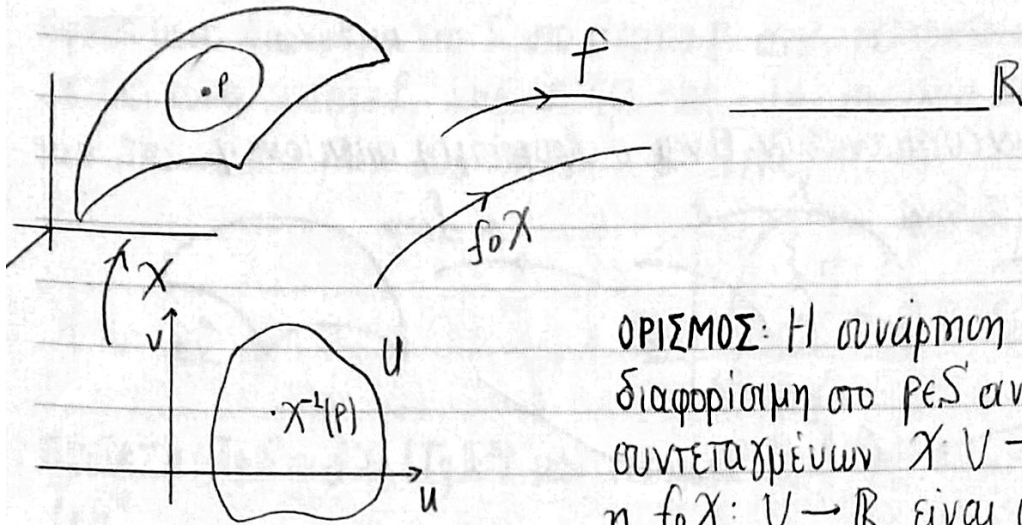 f
ℝ
.p
f∘X
X
v
U
.X⁻¹(p)
u
ΟΡΙΣΜΟΣ: Η συνάρτηση
διαφορίσιμη στο p∈S αν
συντεταγμένων X U →
η f∘X: U → ℝ είναι